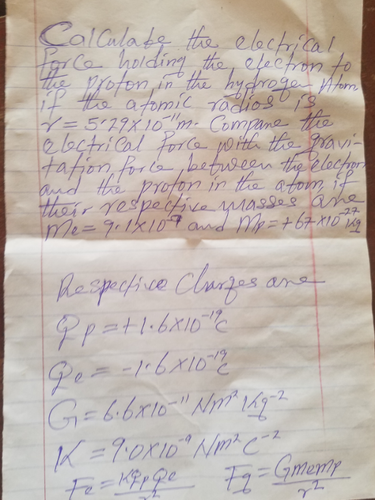 Calculate the electrical
force holding the electron to
the proton in the hydrogen Atom
if the atomic radios is
r = 5.29×10⁻¹¹m. Compane the
electrical force with the gravi-
tation force between the electron
and the proton in the atom if
their respective masses are
Me = 9.1×10⁻ and Mp = +67×10⁻²⁷ Kg
Respective Charges are
qp = +1.6×10⁻¹⁹c
qe = -1.6×10⁻¹⁹c
G = 6.6×10⁻¹¹ Nm² Kg⁻²
K = 9.0×10⁻⁹ Nm² C⁻²
Fe = Kqpqe/r² Fg = Gmemp/r²